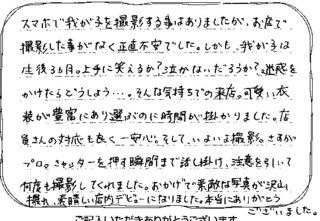 スマホで我が子を撮影する事はありましたが、お店で
撮影した事がなく正直不安でした。しかも、我が子は
生後3ヵ月。上手に笑えるか？泣かないだろうか？迷惑を
かけたらどうしよう…。そんな気持ちでの来店。可愛い衣
装が豊富にあり選ぶのに時間が掛かりました。店
員さんの対応も良く一安心。そして、いよいよ撮影。さすが
プロ。シャッターを押す瞬間まで話し掛け、注意を引いて
何度も撮影してくれました。おかげで素敵な写真が沢山
撮れ、素晴しい店内デビューになりました。本当にありがとう
ございました。
ご記入いただきありがとうございます